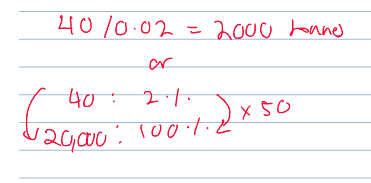 40/0.02 = 2000 tonnes
or
40 : 2%
20,000 : 100% × 50